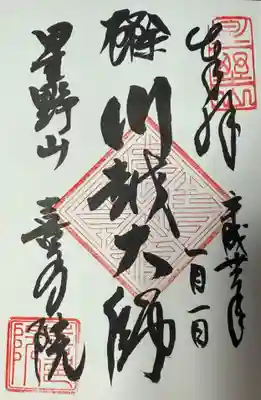 奉拝
平成廿年
一月一日
川越大師
星野山
喜多院